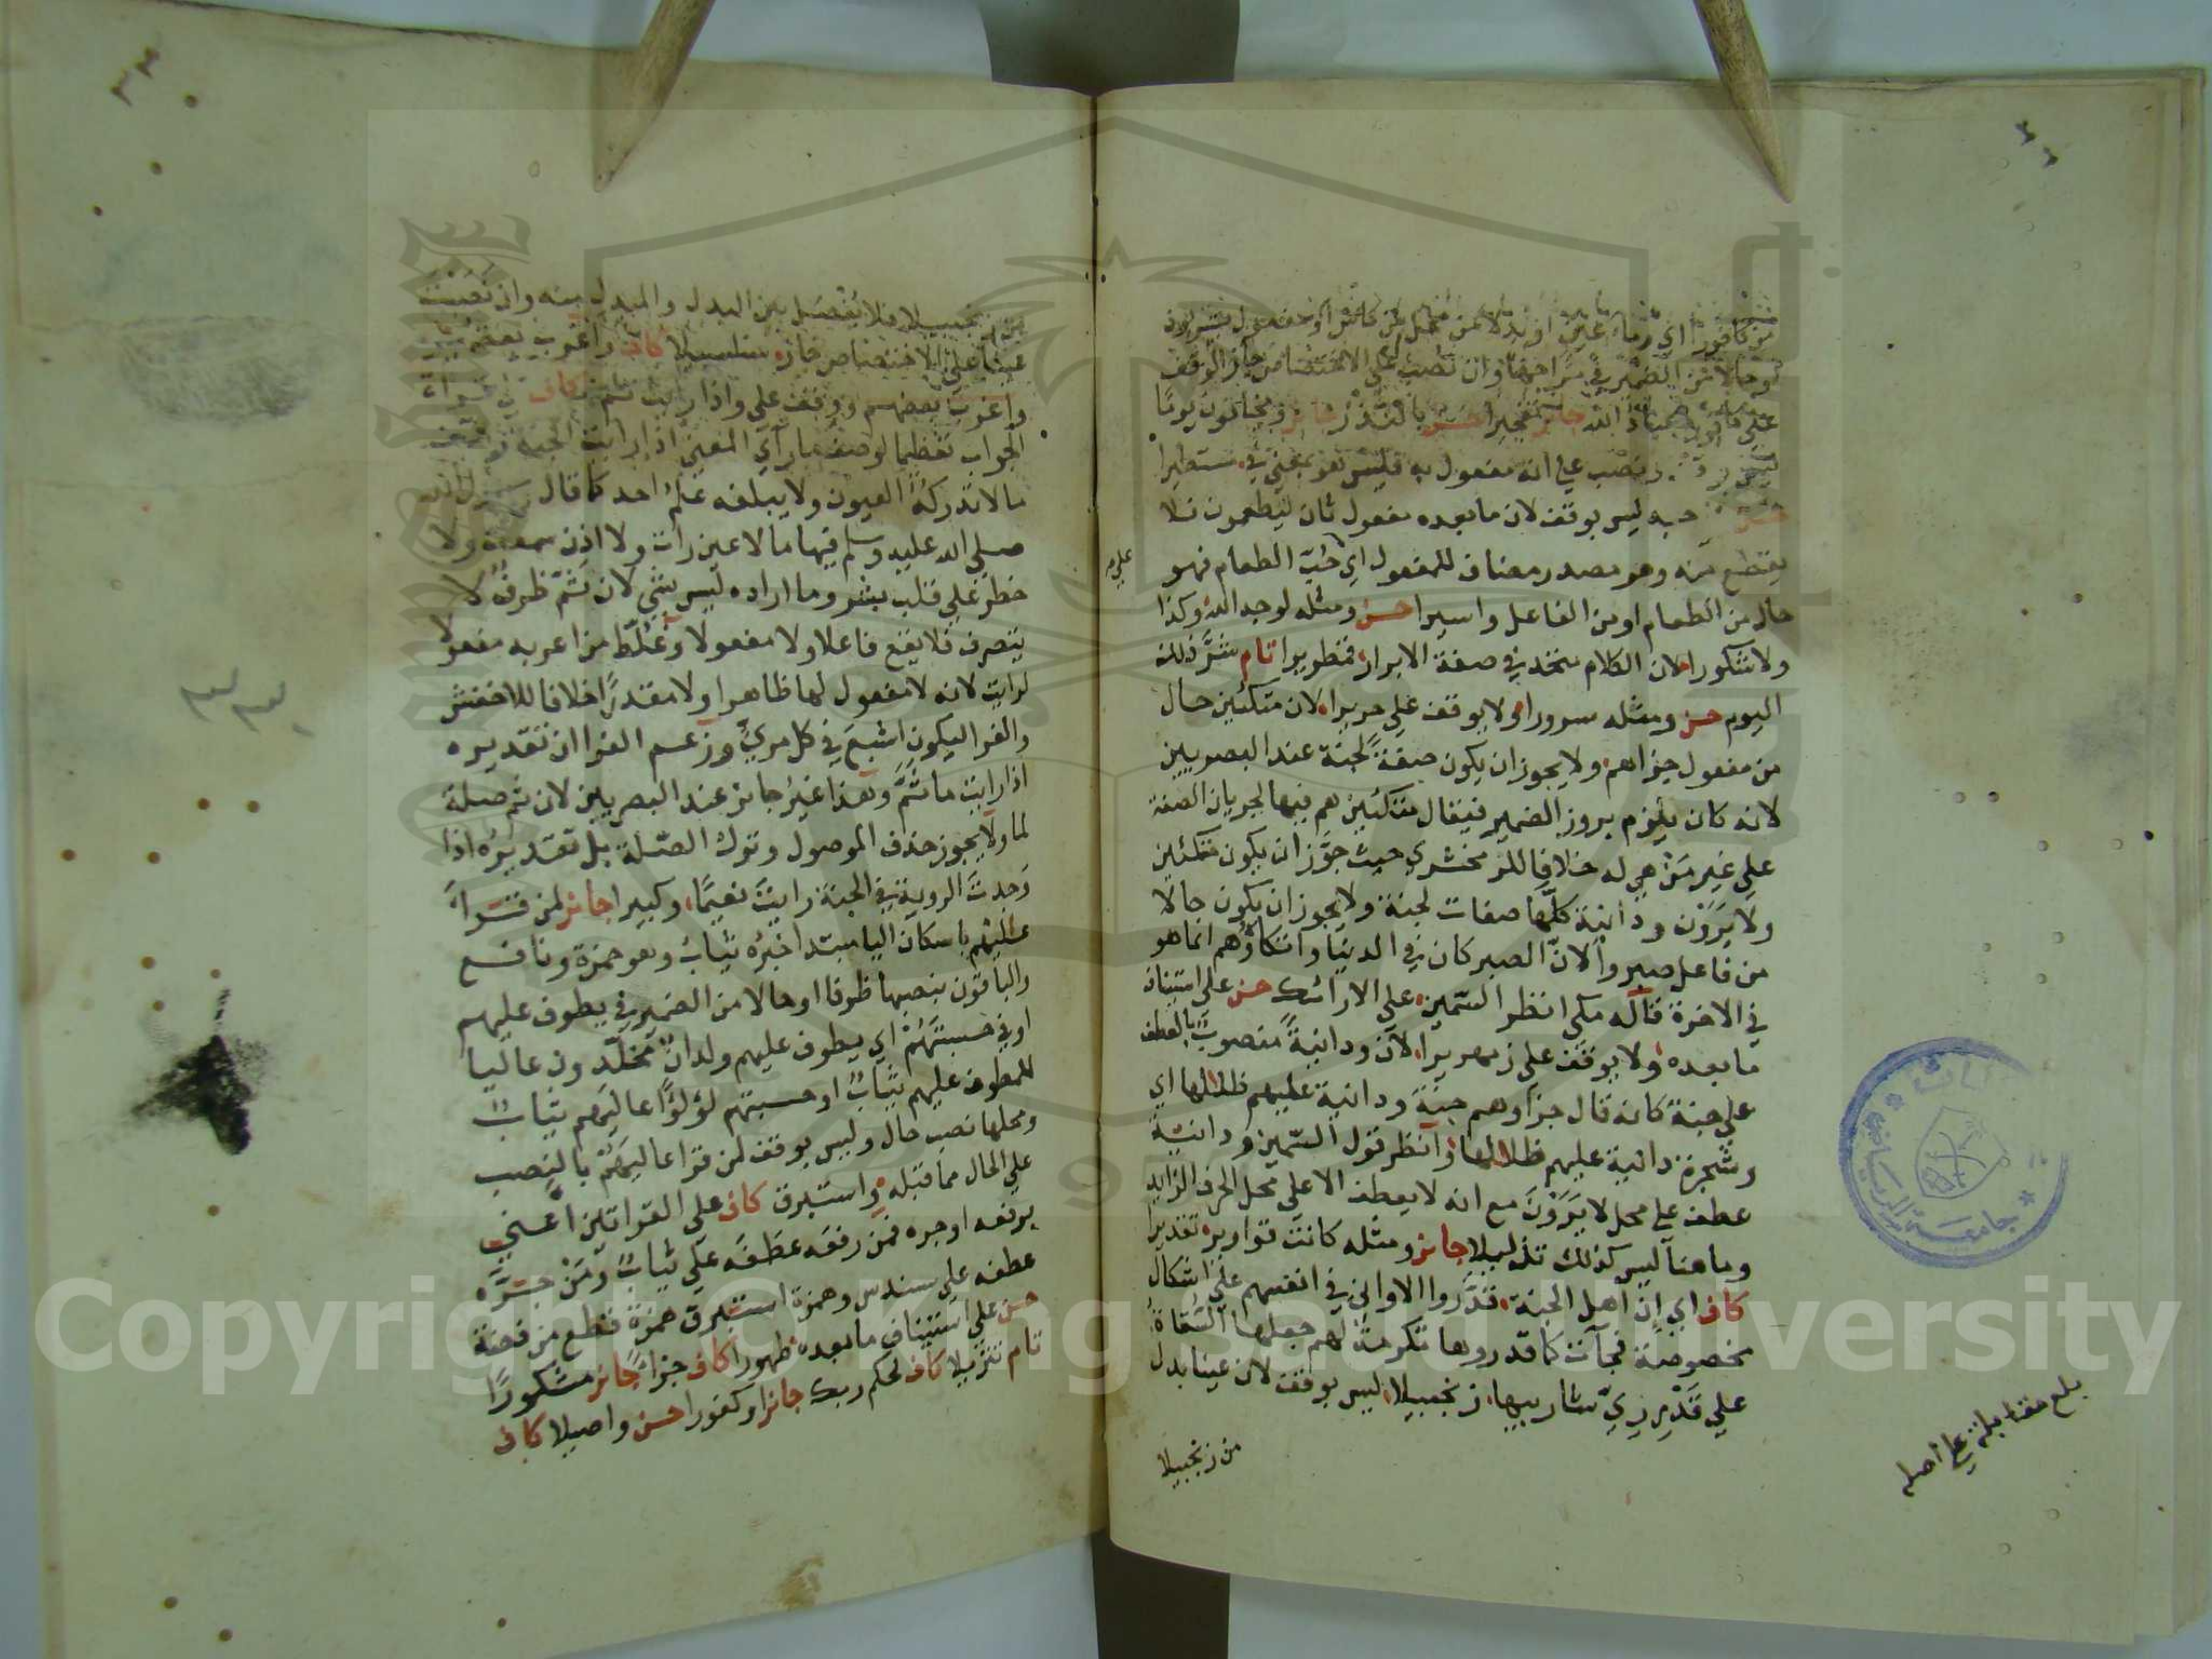 من كافورا اي ماء عين او بدلا من محل من كاس او مفعول يشربون
او حالا من الضمير في مزاجها وان نصب على الاختصاص جاز الوقف
على كافورا عباد الله جائز تفجيرا حسن بالنذر جائز ويخافون يوما
ينصب على انه مفعول به فليس هو بمعنى في مستطيرا
حسن حبه ليس بوقف لان ما بعده مفعول ثان ليطعمون فلا
يقطع منه وهو مصدر مضاف للمفعول اي حب الطعام فهو
حال من الطعام او من الفاعل واسيرا حسن ومثله لوجه الله وكذا
ولا شكورا لان الكلام متحد في صفة الابرار قمطريرا تام شر ذلك
اليوم حسن ومثله سرورا ولا يوقف على حريرا لان متكئين حال
من مفعول جزاهم ولا يجوز ان يكون صفة لجنة عند البصريين
لانه كان يلزم بروز الضمير فيقال متكئين هم فيها لجريان الصفة
على غير من هي له خلافا للزمخشري حيث جوز ان يكون متكئين
ولا يرون ودانية كلها صفات لجنة ولا يجوز ان يكون حالا
من فاعل صبروا لان الصبر كان في الدنيا واتكاؤهم انما هو
في الاخرة قاله مكي انظر السمين على الارائك حسن على استئناف
ما بعده ولا يوقف على زمهريرا لان ودانية منصوب بالعطف
على جنة كانه قال جزاوهم جنة ودانية عليهم ظلالها اي
وشجرة دانية عليهم ظلالها وانظر قول السمين ودانية
عطف على محل لا يرون مع انه لا يعطف الا على محل الحرف الزايد
وما هنا ليس كذلك تذليلا جائز ومثله كانت قواريرا تقديرا
كاف اي ان اهل الجنة قدروا الاواني في انفسهم على اشكال
مخصوصة فجآت كما قدروها تكرمة لهم جعلها السقاة
على قدر ري شاربيها زنجبيلا ليس بوقف لان عينا بدل
من زنجبيلا
على
بلغ مقابلة على اصله
من زنجبيلا فلا يفصل بين البدل والمبدل منه وان نصبت
عينا على الاختصاص جاز سلسبيلا كاف واغرب بعضهم
واغرب بعضهم ووقف على واذا رايت ثم
الجواب تعظيما لوصف ما رآى المعنى اذا رايت الجنة
ما لا تدركه العيون ولا يبلغه علم احد كما قال
صلى الله عليه وسلم فيها ما لا عين رات ولا اذن سمعت ولا
خطر على قلب بشر وما اراده ليس بشي لان ثم ظرف لا
يتصرف فلا يقع فاعلا ولا مفعولا وغلط من اعربه مفعولا
لرايت لانه لا مفعول لها ظاهرا ولا مقدرا خلافا للاخفش
والفرا ليكون اشيع في كل مري وزعم الفرا ان تقديره
اذا رايت ما ثم وهذا غير جائز عند البصريين لان ثم صلة
لما ولا يجوز حذف الموصول وترك الصلة بل تقديره اذا
وجدت الروية في الجنة رايت نعيما وكبيرا جائز لمن قرا
عاليهم باسكان اليا مبتدا خبره ثياب وهو حمزة ونافع
والباقون بنصبها ظرفا او حالا من الضمير في يطوف عليهم
او في حسبتهم اي يطوف عليهم ولدان مخلدون عاليا
للمطوف عليهم ثياب او حسبتهم لؤلؤا عاليهم ثياب
ومحلها نصب حال وليس بوقف لمن قرا عاليهم بالنصب
على الحال مما قبله واستبرق كاف على القراتين اعني
برفعه او جره فمن رفعه عطفه على ثياب ومن جره
عطفه على سندس وهمزة استبرق همزة قطع من فضة
حسن على استئناف ما بعده طهورا كاف جزاء جائز مشكورا
تام تنزيلا كاف لحكم ربك جائز او كفورا حسن واصيلا كاف
Copyright © King Saud University